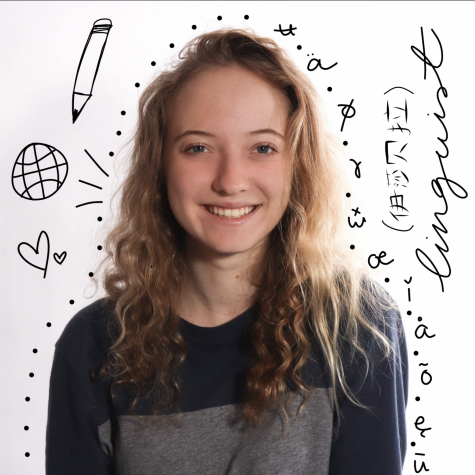 ʉ
ä
ø
ɤ
æ
ĭ
â
õ
linguist
(伊莎贝拉)